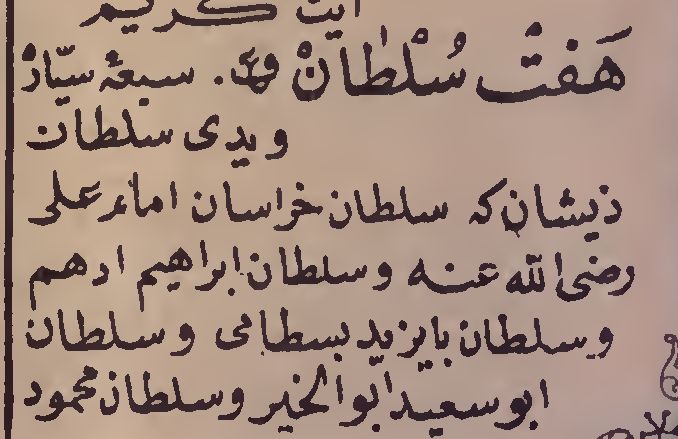 آیت کریم
هَفتْ سُلْطَانْ ف. سبعهٔ سیّارْ
ویدی سلطان
ذیشان که سلطان خراسان امام علی
رضی الله عنه وسلطان ابراهیم ادهم
وسلطان بایزید بسطامی وسلطان
ابوسعید ابوالخیر وسلطان محمود